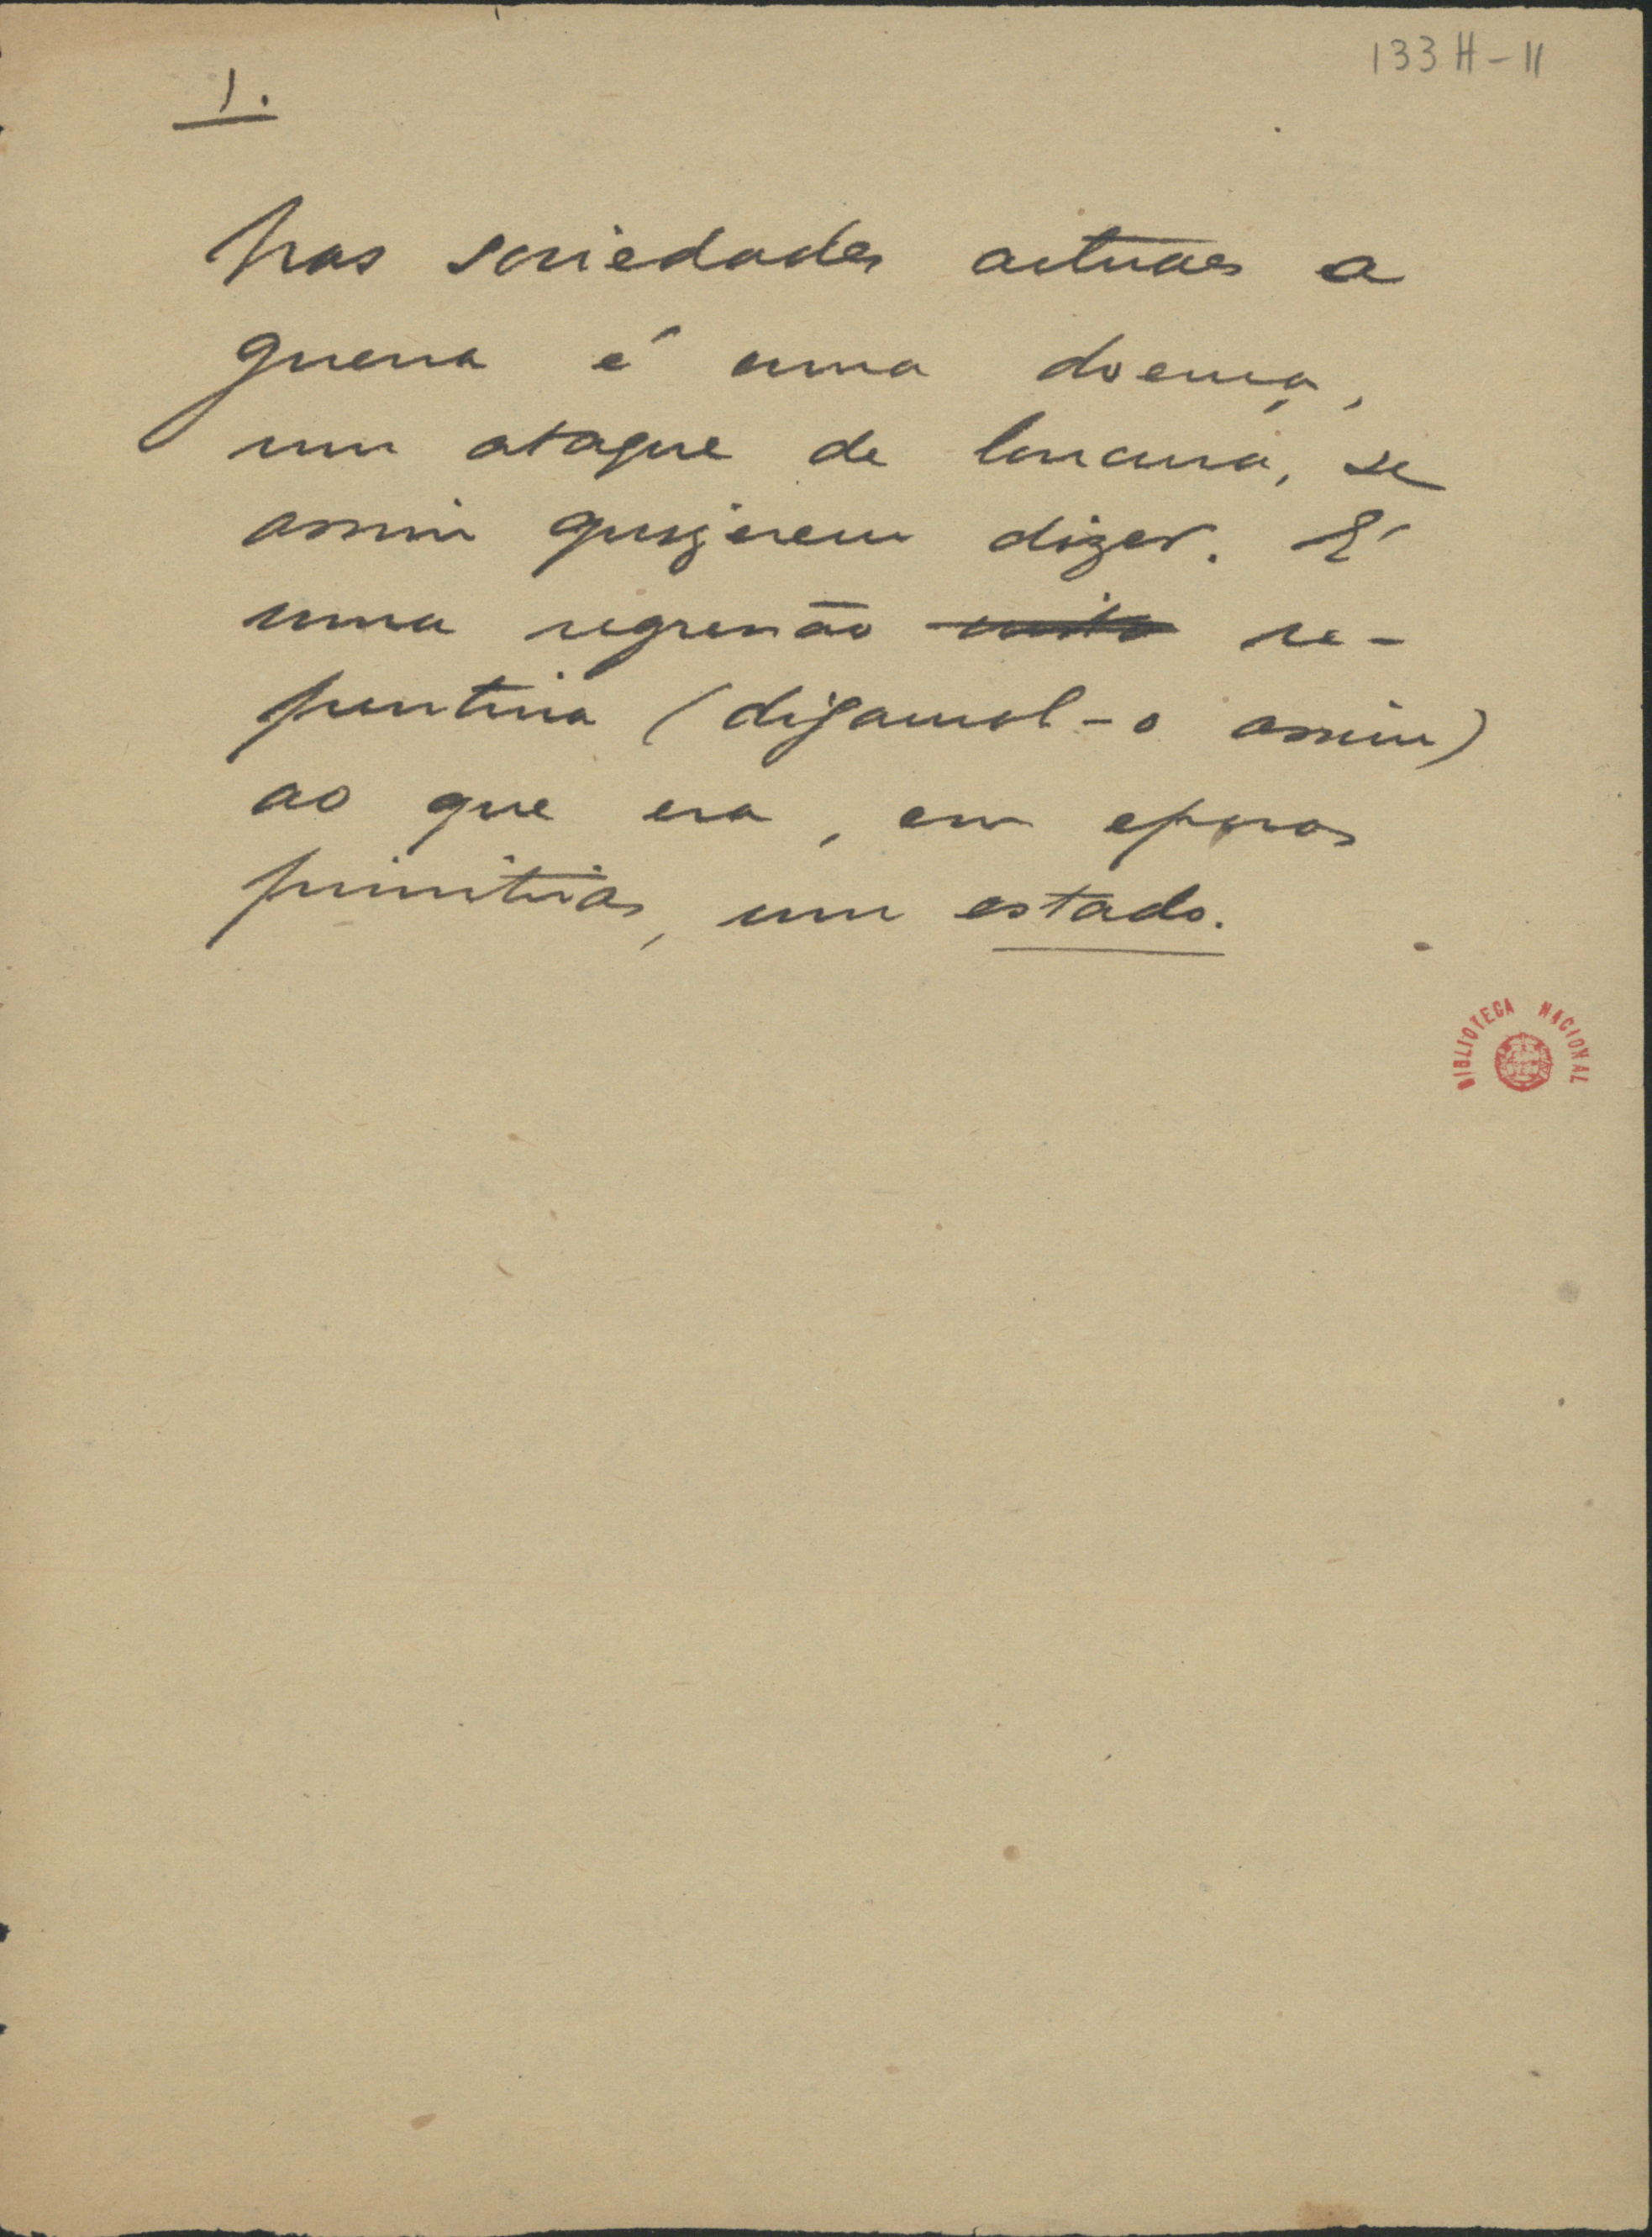 133 H - 11
1.
Nas sociedades actuaes a
guerra é uma doença,
um ataque de loucura, se
assim quizerem dizer. É
uma regressão re-
pentina (digamol-o assim)
ao que era, em epocas
primitivas, um estado.
BIBLIOTECA NACIONAL